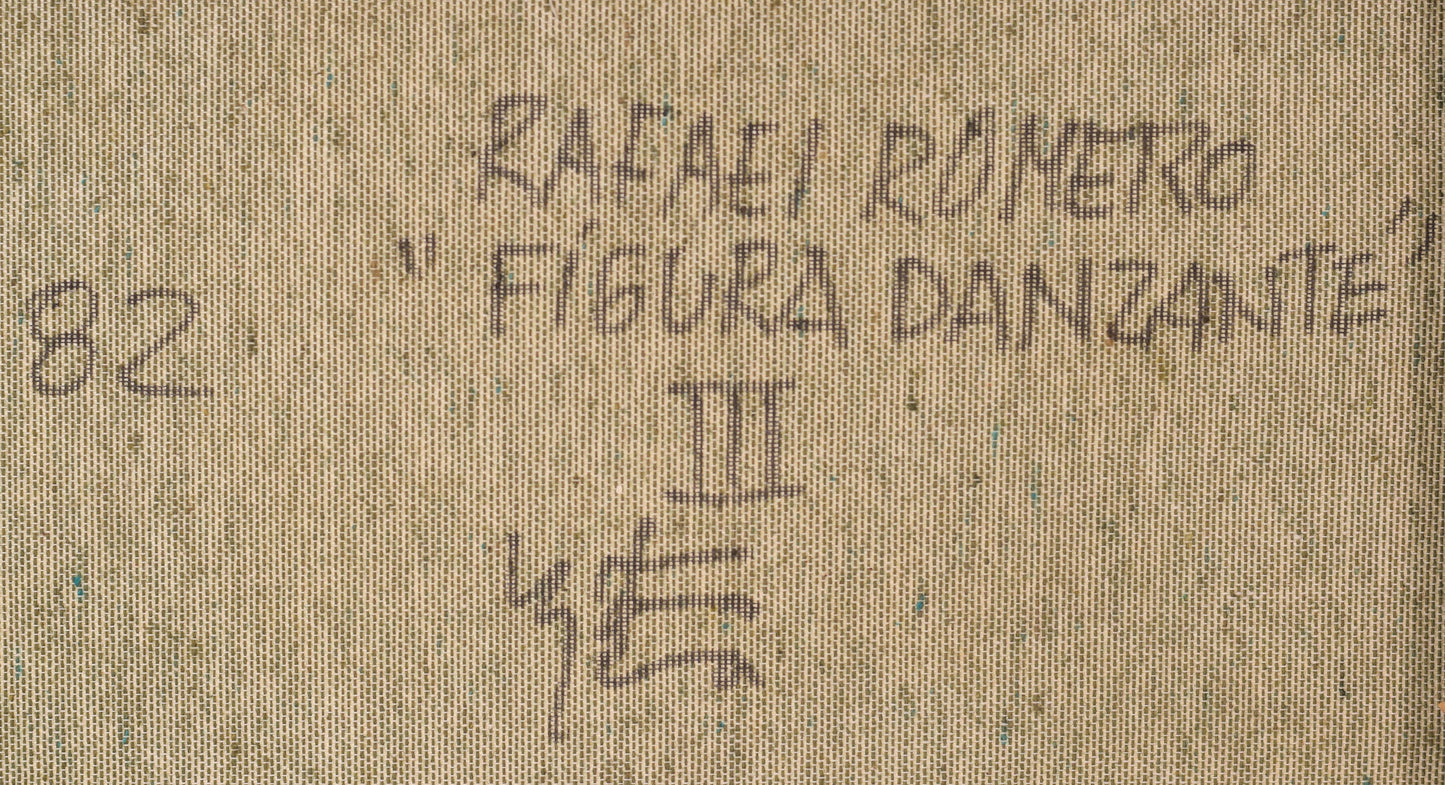 RAFAEl ROMERO
"FÍGURA DANZANTE"
82
II